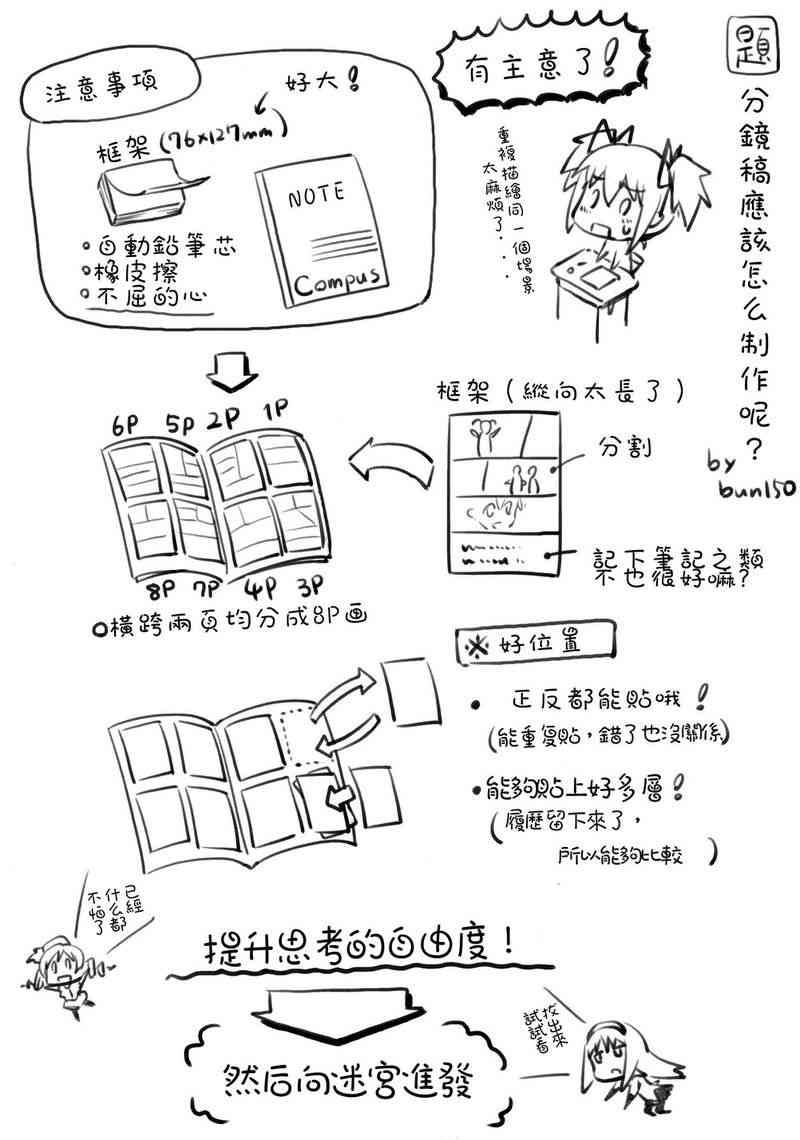 題
分鏡稿應該怎么制作呢？
by
bun150
有主意了！
重複描繪同一個場景
太麻煩了...
注意事項
好大！
框架(76×127mm)
NOTE
Compus
•自動鉛筆芯
•橡皮擦
•不屈的心
框架（縱向太長了）
分割
記下筆記之類
不也很好嘛？
6P 5P 2P 1P
8P 7P 4P 3P
橫跨兩頁均分成8P画
※好位置
• 正反都能貼哦！
(能重复貼，錯了也沒關係)
•能夠貼上好多層！
(履歷留下來了，
所以能夠比較)
已經
什么都
不惱了
提升思考的自由度！
然后向迷宮進發
找出來
試試看